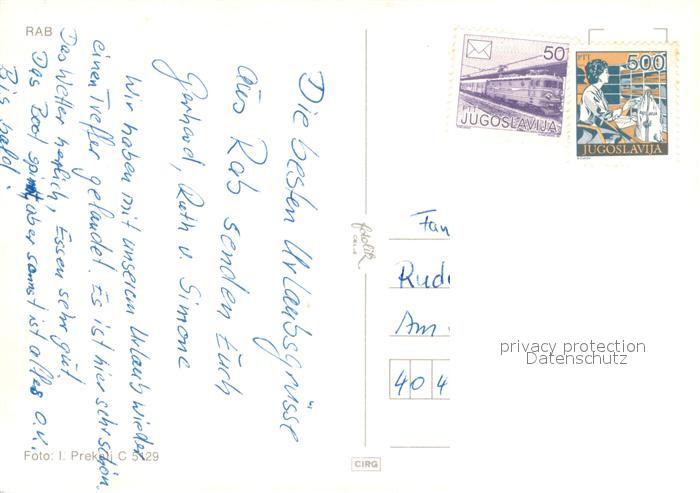 RAB
Die besten Urlaubsgrüsse
aus Rab senden Euch
Gerhard, Ruth u. Simone
Wir haben mit unserem Urlaub wieder
einen Treffer gelandet. Es ist hier sehr schön.
Das Wetter herrlich, Essen sehr gut.
Das Boot spinnt, aber sonst ist alles o.k.
Bis bald!
Foto: I. Prekalj C 5129
fotolik
CIRG
50
PTT
JUGOSLAVIJA
PTT
500
JUGOSLAVIJA
Fam
Rud
Am
404
privacy protection
Datenschutz